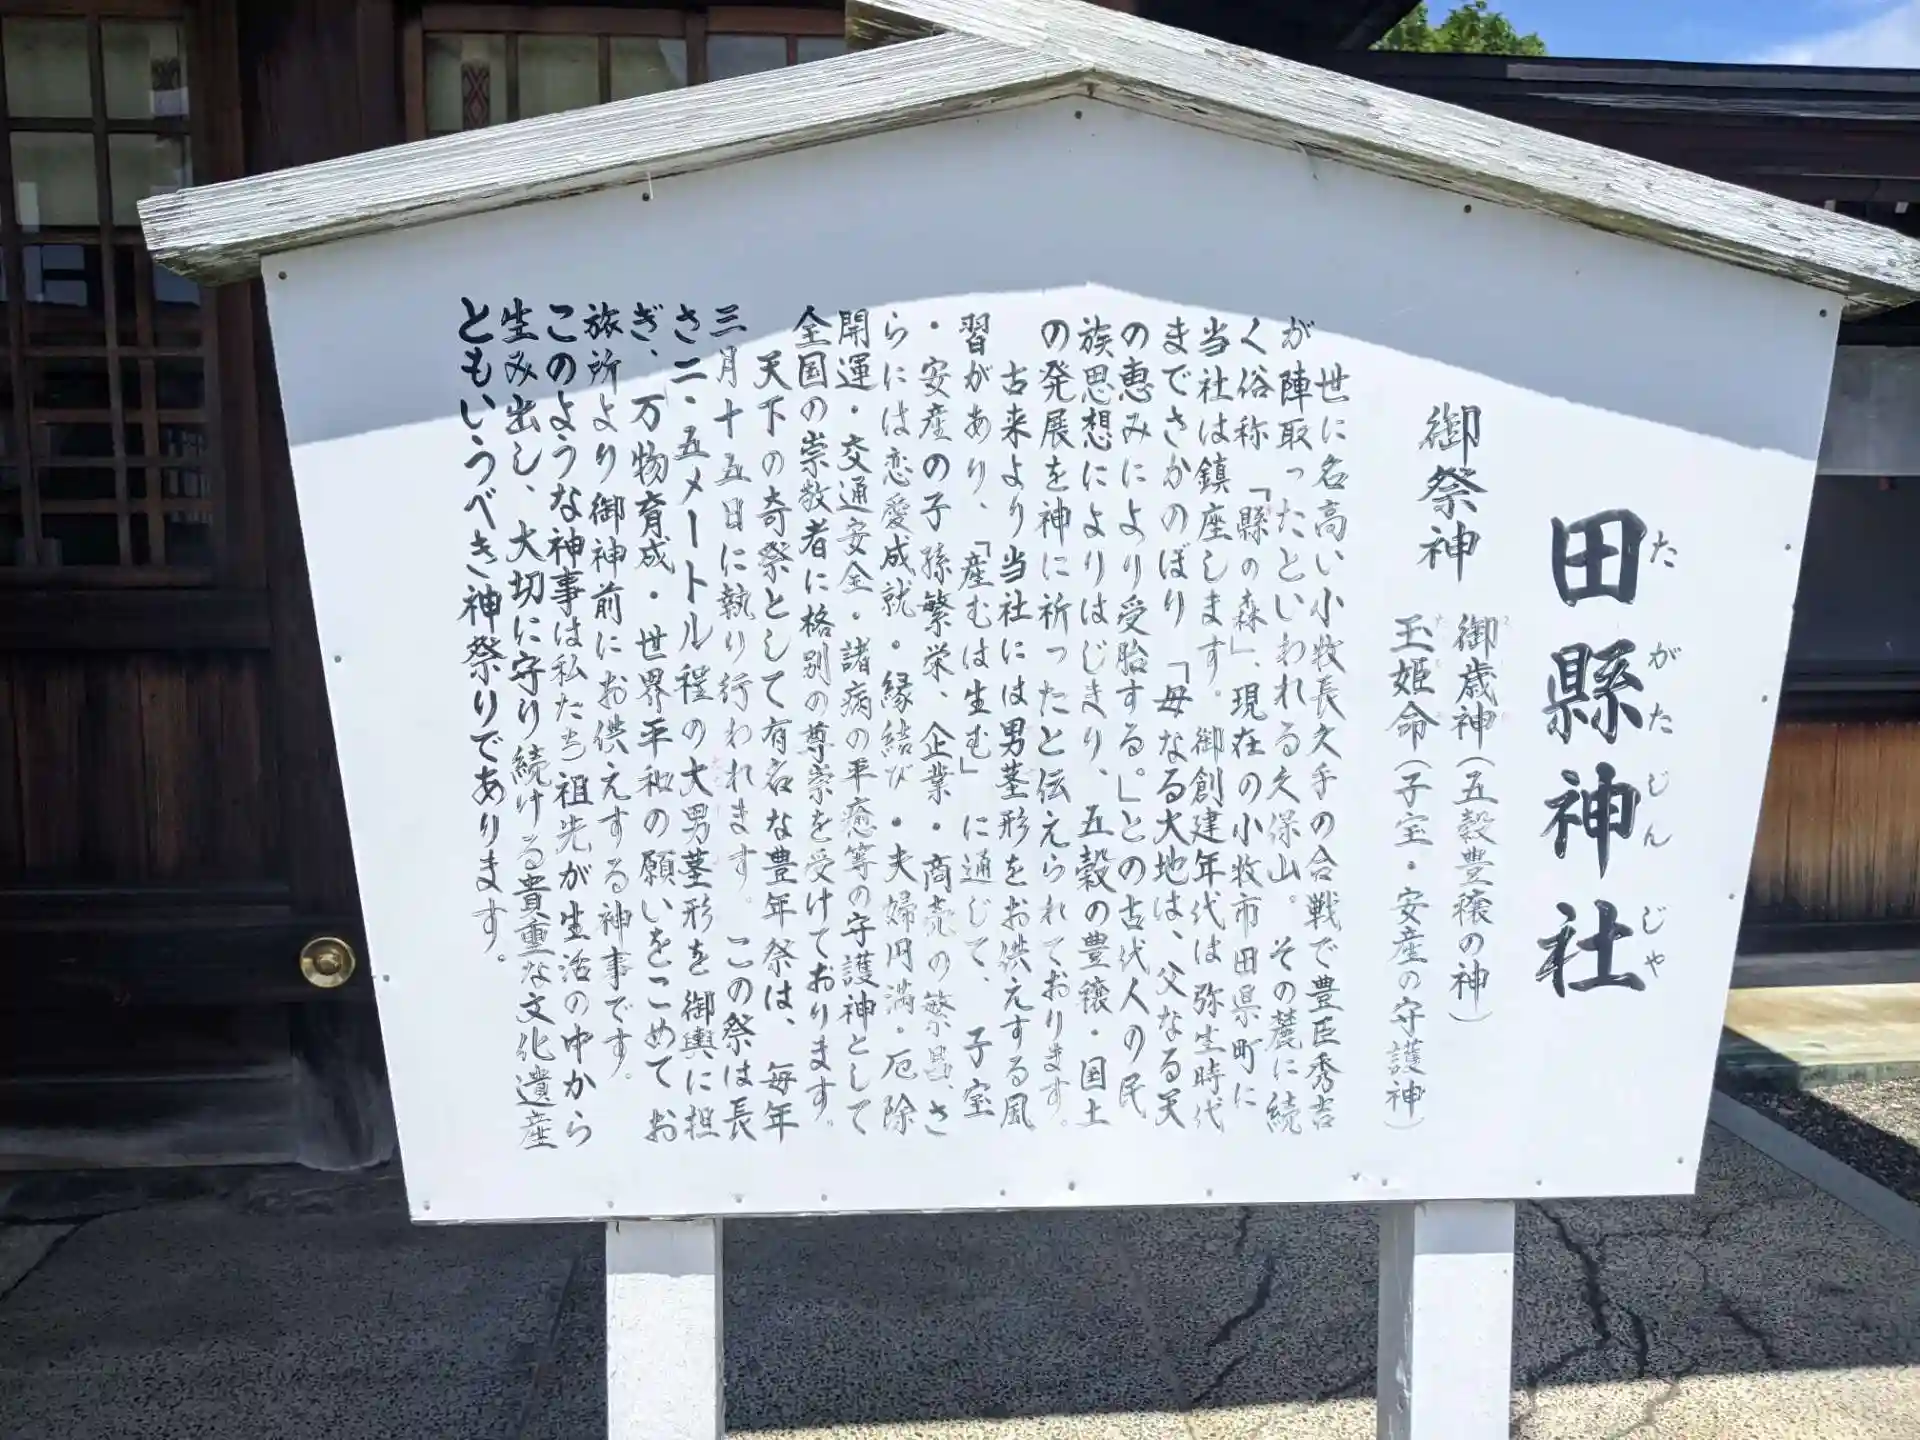 田縣神社
たがたじんじゃ
御祭神
御歳神(五穀豊穣の神)
玉姫命(子宝・安産の守護神)
世に名高い小牧長久手の合戦で豊臣秀吉
が陣取ったといわれる久保山。その麓に続
く俗称「縣の森」、現在の小牧市田県町に
当社は鎮座します。御創建年代は弥生時代
までさかのぼり「母なる大地は、父なる天
の恵みにより受胎する。」との古代人の民
族思想によりはじまり、五穀の豊穣・国土
の発展を神に祈ったと伝えられております。
古来より当社には男茎形をお供えする風
習があり、「産むは生む」に通じて、子宝
・安産の子孫繁栄、企業・商売の繁昌、さ
らには恋愛成就・縁結び・夫婦円満・厄除
開運・交通安全・諸病の平癒等の守護神として
全国の崇敬者に格別の尊崇を受けております。
天下の奇祭として有名な豊年祭は、毎年
三月十五日に執り行われます。この祭は長
さ二、五メートル程の大男茎形を御輿に担
ぎ、万物育成・世界平和の願いをこめてお
旅所より御神前にお供えする神事です。
このような神事は私たち祖先が生活の中から
生み出し、大切に守り続ける貴重な文化遺産
ともいうべき神祭りであります。